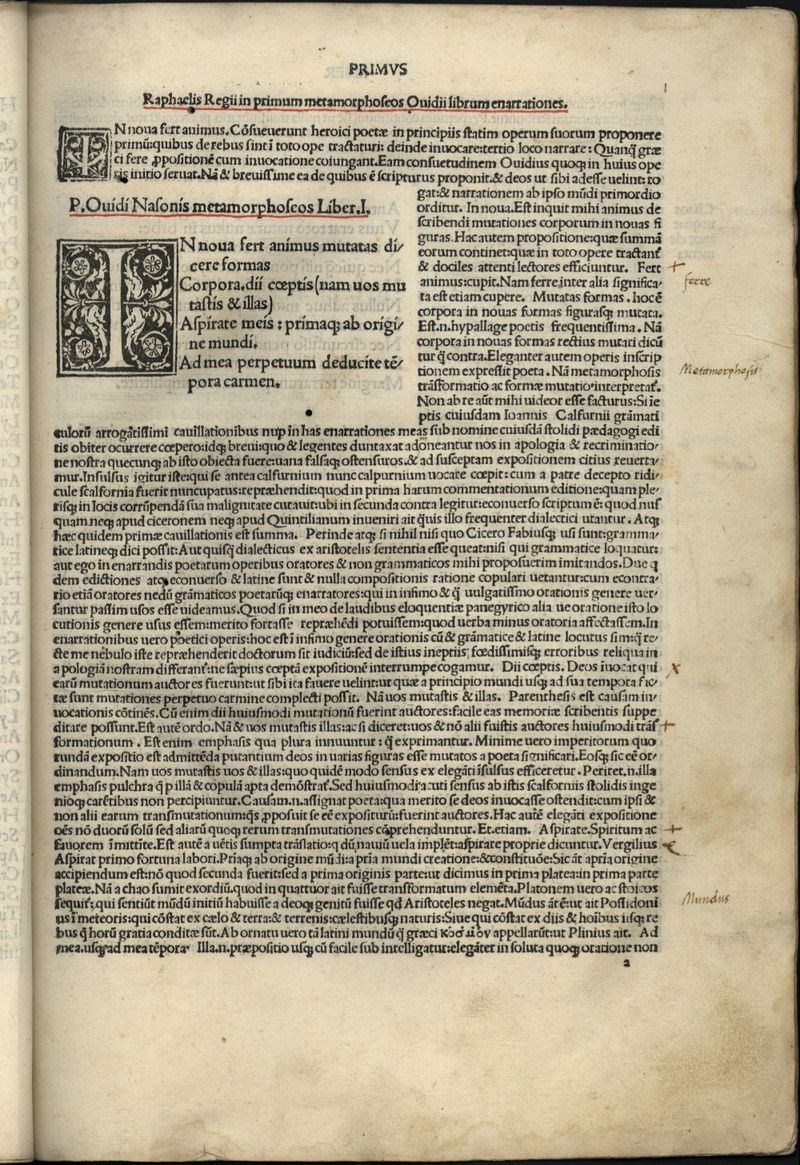 PRIMVS
1
Raphaelis Regii in primum metamorphoseos Ouidii librum enarrationes.
IN noua fert animus. Cõsueuerunt heroici poetæ in principiis statim operum suorum proponere
primũ: quibus de rebus sint ĩ toto ope tractaturi: deinde inuocare: tertio loco narrare: Quanq̃ græ
ci fere ꝓpositionẽ cum inuocatione coiungant. Eam consuetudinem Ouidius quoqꝫ in huius ope
ris initio seruat. Nã & breuissime ea de quibus ẽ scripturus proponit. & deos ut sibi adesse uelint: ro
gat: & narrationem ab ipso mũdi primordio
orditur. In noua. Est inquit mihi animus de
scribendi mutationes corporum in nouas fi
guras. Hac autem propositione: quæ summã
eorum continet: quæ in toto opere tractant̃
& dociles attenti lectores efficiuntur. Fert
animus: cupit. Nam ferre inter alia significa/
ta est etiam cupere. Mutatas formas. hoc ẽ
corpora in nouas formas figurasqꝫ mutata.
Est.n. hypallage poetis frequentissima. Nã
corpora in nouas formas rectius mutari dicũ
tur q̃ contra. Eleganter autem operis inscrip
tionem expressit poeta. Nã metamorphosis
trãsformatio ac formæ mutatio interpretat̃.
Non ab re aũt mihi uideor esse facturus: Si ĩe
ptis cuiusdam Ioannis Calfurnii grãmati
P. Ouidi Nasonis metamorphoseos Liber.I.
IN noua fert animus mutatas di/
cere formas
Corpora. dii cœptis (nam uos mu
tastis & illas)
Aspirate meis: primaqꝫ ab origi/
ne mundi.
Ad mea perpetuum deducite tẽ/
pora carmen.
culorũ arrogãtissimi cauillationibus nuꝑ in has enarrationes meas sub nomine cuiusdã stolidi pædagogi edi
tis obiter ocurrere cœpero: idqꝫ breui: quo & legentes duntaxat adoneantur nos in apologia & recriminatio/
ne nostra quecunqꝫ ab isto obiecta fuere: uana falsaqꝫ ostensuros. & ad susceptam expositionem citius reuerta/
mur. Insulsus igitur iste: qui se antea calfurnium nunc calpurnium uocare cœpit: cum a patre decepto ridi/
cule scalfornia fuerit nuncupatus: repræhendit: quod in prima harum commentationum editione: quam ple/
risqꝫ in locis corrũpendã sua malignitate curauit: ubi in secunda contra legitur: econuerso scriptum ẽ: quod nus
quam. neqꝫ apud ciceronem neqꝫ apud Quintilianum inueniri ait q̃uis illo frequenter dialectici utantur. Atqꝫ
hæc quidem primæ cauillationis est summa. Perinde atqꝫ si nihil nisi quo Cicero Fabiusqꝫ usi sunt: gramma/
tice latineqꝫ dici possit: Aut quisq̃ dialecticus ex aristotelis sententia esse queat: nisi qui grammatice loquatur:
aut ego in enarrandis poetarum operibus oratores & non grammaticos mihi proposuerim imitandos. Due q̃
dem edictiones atqꝫ econuerso & latine sunt & nulla compositionis ratione copulari uetantur: cum econtra/
rio etiã oratores nedũ grãmaticos poetarũqꝫ enarratores: qui in infimo & q̃ uulgatissimo orationis genere uer/
santur passim usos esse uideamus. Quod si in meo de laudibus eloquentiæ panegyrico alia ue oratione isto lo
cutionis genere usus essem: merito fortasse repræhẽdi potuissem: quod uerba minus oratoria affectassem. In
enarrationibus uero poetici operis: hoc est ĩ infimo genere orationis cũ & grãmatice & latine locutus sim: q̃ re/
cte me nebulo iste repræhenderit doctorum sit iudiciũ: sed de istius ineptiis fœdissimisqꝫ erroribus reliqua in
a pologiã nostram differant̃: ne sæpius cœptã expositionẽ interrumpe cogamur. Dii cœptis. Deos ĩuocat qui
earũ mutationum auctores fuerunt: ut sibi ita fauere uelint: ut quæ a principio mundi usqꝫ ad sua tempora fac/
tæ sunt mutationes perpetuo carmine complecti possit. Nã uos mutastis & illas. Parenthesis est causam in/
uocationis cõtinẽs. Cũ enim dii huiusmodi mutationũ fuerint auctores: facile eas memoriæ scribentis suppe
ditare possunt. Est autẽ ordo. Nã & uos mutastis illas: ac si diceret: uos & nõ alii fuistis auctores huiusmodi trãs
formationum. Est enim emphasis qua plura innuuntur: q̃ exprimantur. Minime uero imperitorum quo
rundã expositio est admittẽda putantium deos in uarias figuras esse mutatos a poeta significari. Eosqꝫ sic eẽ or/
dinandum. Nam uos mutastis uos & illas: quo quidẽ modo sensus ex elegãti ĩsulsus efficeretur. Periret.n. illa
emphasis pulchra q̃ ꝑ illã & copulã apta demõstrat̃. Sed huiusmodi acuti sensus ab istis scalforniis stolidis inge
nioqꝫ carẽtibus non percipiuntur. Causam.n. assignat poeta: qua merito se deos inuocasse ostendit: cum ipsi &
non alii earum transmutationum: q̃s ꝓposuit se eẽ expositurũ: fuerint auctores. Hac autẽ elegãti expositione
oẽs nõ duorũ solũ sed aliarũ quoqꝫ rerum transmutationes cõprehenduntur. Et. etiam. Aspirate. Spiritum ac
fauorem ĩmittite. Est autẽ a uẽtis sumpta trãslatio: q dũ nauiũ uela implẽt: aspirare proprie dicuntur. Vergilius
Aspirat primo fortuna labori. Priaqꝫ ab origine mũdi: a pria mundi creatione: & constitutiõe: Sic ãt apria origine
accipiendum est: nõ quod secunda fuerit: sed a prima originis parte: ut dicimus in prima platea: in prima parte
plateæ. Nã a chao sumit exordiũ. quod in quattuor ait fuisse transformatum elemẽta. Platonem uero ac stoicos
sequit̃: qui sentiũt mũdũ initiũ habuisse a deoqꝫ genitũ fuisse qđ Aristoteles negat. Mũdus ãt ẽ: ut ait Possidoni
us ĩ meteoris: qui cõstat ex cælo & terra: & terrenis: cælestibusqꝫ naturis: Siue qui cõstat ex diis & hoĩbus iisqꝫ re
bus q̃ horũ gratia conditæ sũt. Ab ornatu uero tã latini mundũ q̃ græci κόσμον appellarũt: ut Plinius ait. Ad
mea. usqꝫ ad mea tẽpora. Illa.n. præpositio usqꝫ cũ facile sub intelligatur: elegãter in soluta quoqꝫ oratione non
a
ferre
Metamorphosis
Mundus